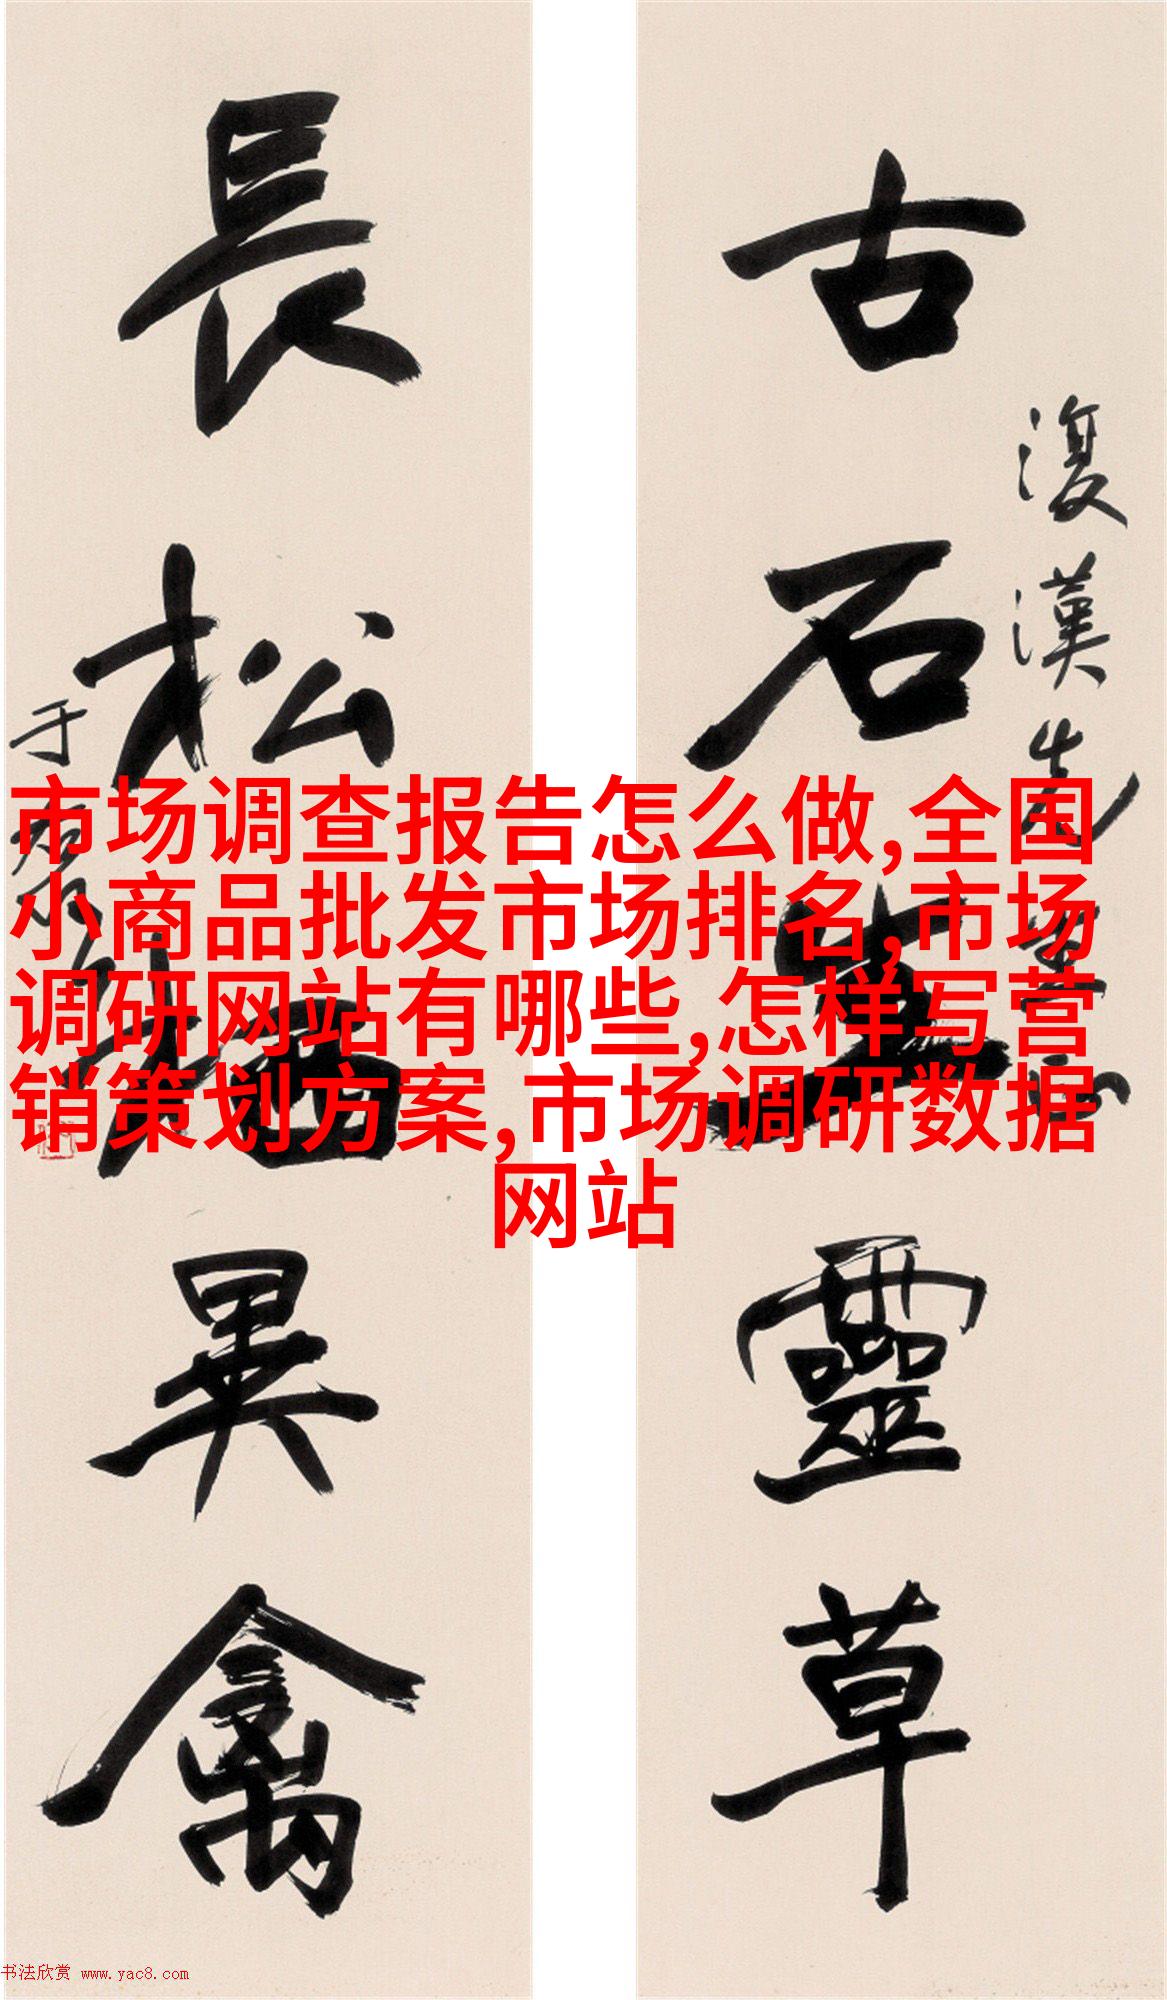 古石生靈草
復漢先生正
長松栖異禽
于右任
市场调查报告怎么做,全国
小商品批发市场排名,市场
调研网站有哪些,怎样写营
销策划方案,市场调研数据
网站
书法欣赏 www.yac8.com